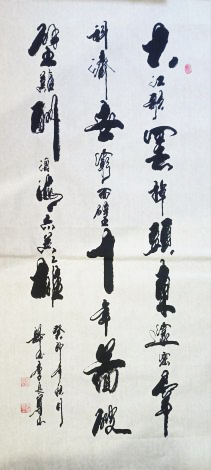 大江歌罢棹頭東邃密群
科济世窮面壁十年圖破
壁難酬蹈海亦英雄
癸卯年秋月